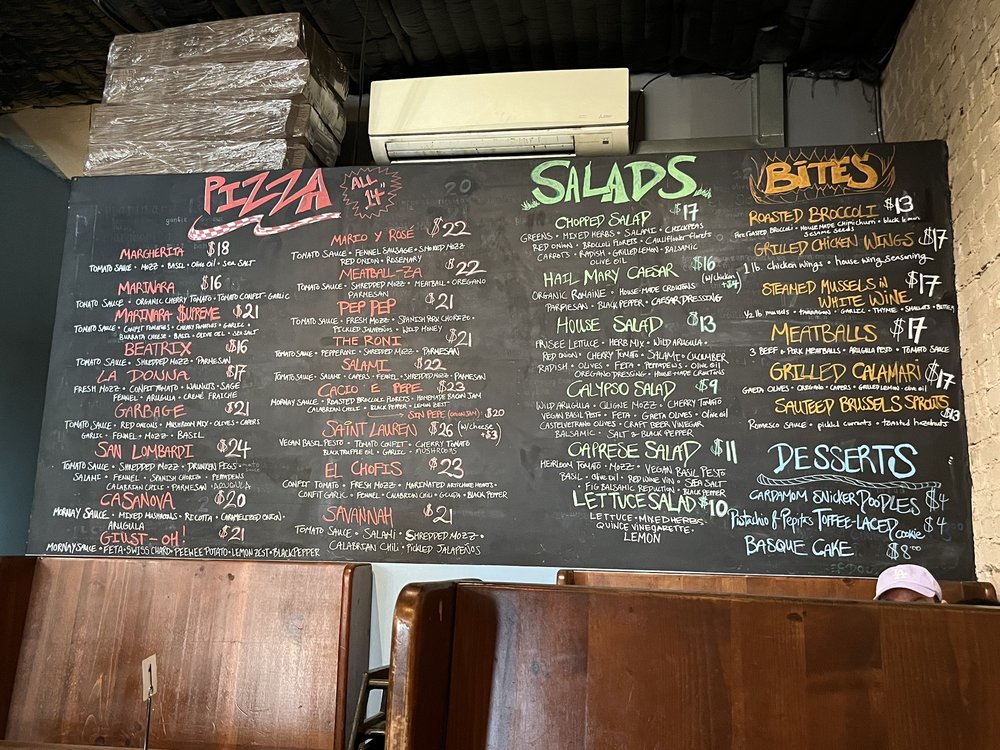 PIZZA
ALL 14"
MARGHERITA $18
TOMATO SAUCE • MOZZ • BASIL • OLIVE OIL • SEA SALT
MARINARA $16
TOMATO SAUCE • ORGANIC CHERRY TOMATO • TOMATO CONFIT • GARLIC
MARINARA $UPREME $21
TOMATO SAUCE • CONFIT TOMATOES • CHERRY TOMATOES • GARLIC •
BURRATA CHEESE • BASIL • OLIVE OIL • SEA SALT
BEATRIX $16
TOMATO SAUCE • SHREDDED MOZZ • PARMESAN
LA DONNA $17
FRESH MOZZ • CONFIT TOMATO • WALNUTS • SAGE
FENNEL • ARUGULA • CRÈME FRAÎCHE
GARBAGE $21
TOMATO SAUCE • RED ONIONS • MUSHROOM MIX • OLIVES • CAPERS
GARLIC • FENNEL • MOZZ • BASIL
SAN LOMBARDI $24
TOMATO SAUCE • SHREDDED MOZZ • DRUNKEN FIGS
SALAMI • FENNEL • SPANISH CHORIZO • PEPPADEWS
CALABRIAN CHILI • PARMESAN
CASANOVA $20
MORNAY SAUCE • MIXED MUSHROOMS • RICOTTA • CARAMELIZED ONION •
ARUGULA
GIUST-OH! $21
MORNAY SAUCE • FETA • SWISS CHARD • PEEWEE POTATO • LEMON ZEST • BLACK PEPPER
MARIO Y ROSÉ $22
TOMATO SAUCE • FENNEL SAUSAGE • SMOKED MOZZ
RED ONION • ROSEMARY
MEATBALL-ZA $22
TOMATO SAUCE • SHREDDED MOZZ • MEATBALL • OREGANO
PARMESAN
PEP PEP $21
TOMATO SAUCE • FRESH MOZZ • SPANISH PORK CHORIZO •
PICKLED JALAPEÑOS • WILD HONEY
THE RONI $21
TOMATO SAUCE • PEPPERONI • SHREDDED MOZZ • PARMESAN
SALAMI $22
TOMATO SAUCE • SALAMI • CAPERS • FENNEL • SHREDDED MOZZ • PARMESAN
CACIO E PEPE $23
MORNAY SAUCE • ROASTED BROCCOLI FLORETS • HOMEMADE BACON JAM
CALABRIAN CHILI • BLACK PEPPER • LEMON ZEST
SIN PEPE (BACON JAM) $20
SAINT LAUREN $26 (w/cheese +$3)
VEGAN BASIL PESTO • TOMATO CONFIT • CHERRY TOMATO
BLACK TRUFFLE OIL • GARLIC • MUSHROOMS
EL CHOFIS $23
CONFIT TOMATO • FRESH MOZZ • MARINATED ARTICHOKE HEARTS •
CONFIT GARLIC • FENNEL • CALABRIAN CHILI • GOUDA • BLACK PEPPER
SAVANNAH $21
TOMATO SAUCE • SALAMI • SHREDDED MOZZ •
CALABRIAN CHILI • PICKLED JALAPEÑOS
SALADS
CHOPPED SALAD $17
GREENS • MIXED HERBS • SALAMI • CHICKPEAS
RED ONION • BROCCOLI FLORETS • CAULIFLOWER FLORETS
CARROTS • RADISH • GRILLED LEMON • BALSAMIC
OLIVE OIL
HAIL MARY CAESAR $16 (w/chicken +$4)
ORGANIC ROMAINE • HOUSE-MADE CROUTONS
PARMESAN • BLACK PEPPER • CAESAR DRESSING
HOUSE SALAD $13
FRISÉE LETTUCE • HERB MIX • WILD ARUGULA •
RED ONION • CHERRY TOMATO • SALAMI • CUCUMBER
RADISH • OLIVES • FETA • PEPPADEWS • OLIVE OIL
OREGANO DRESSING • HOUSE-MADE CROUTONS
CALYPSO SALAD $9
WILD ARUGULA • CILIGNE MOZZ • CHERRY TOMATO
VEGAN BASIL PESTO • FETA • GAETA OLIVES • OLIVE OIL
CASTELVETRANO OLIVES • CRAFT BEER VINEGAR
BALSAMIC • SALT & BLACK PEPPER
CAPRESE SALAD $11
HEIRLOOM TOMATO • MOZZ • VEGAN BASIL PESTO
BASIL • OLIVE OIL • RED WINE VIN • SEA SALT
FIG BALSAMIC REDUCTION • BLACK PEPPER
LETTUCE SALAD $10
LETTUCE • MIXED HERBS •
QUINCE VINEGARETTE •
LEMON
BITES
ROASTED BROCCOLI $13
FIRE ROASTED BROCCOLI • HOUSE MADE CHIMICHURRI • black lemon
SESAME SEEDS
GRILLED CHICKEN WINGS $17
1 lb. chicken wings • house wing seasoning
STEAMED MUSSELS IN WHITE WINE $17
1/2 lb mussels • PARRAGON • GARLIC • THYME • SHALLOTS • BUTTER
MEATBALLS $17
3 BEEF & PORK MEATBALLS • ARUGULA PESTO • TOMATO SAUCE
GRILLED CALAMARI $17
GAETA OLIVES • OREGANO • CAPERS • GRILLED LEMON • OLIVE OIL
SAUTEED BRUSSELS SPROUTS $13
ROMESCO SAUCE • pickled currants • toasted hazelnuts
DESSERTS
CARDAMOM SNICKER DOODLES $4
PISTACHIO & PEPITA TOFFEE-LACED COOKIE $4
BASQUE CAKE $8.00
1